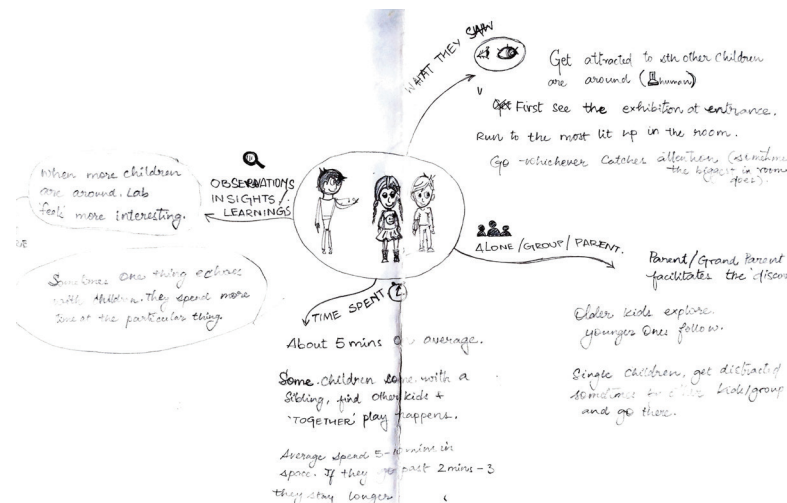 WHAT THEY SAW
Get attracted to sth other children
are around (human)
First see the exhibition at entrance.
Run to the most lit up in the room.
Go whichever catches attention (sometimes
the biggest in room
does).
OBSERVATIONS/
INSIGHTS/
LEARNINGS
When more children
are around. Lab
'feels' more interesting.
Sometimes one thing echoes
with children. They spend more
time at the particular thing.
ALONE/GROUP/PARENT.
Parent/Grand Parent
facilitates the 'disco
Older kids explore.
younger ones follow.
Single children, get distracted
sometimes to kids/group
and go there.
TIME SPENT
About 5 mins on average.
Some children come with a
sibling, find other kids +
'TOGETHER' play happens.
Average spend 5-10 mins in
space. If they get past 2mins-3
they stay longer.